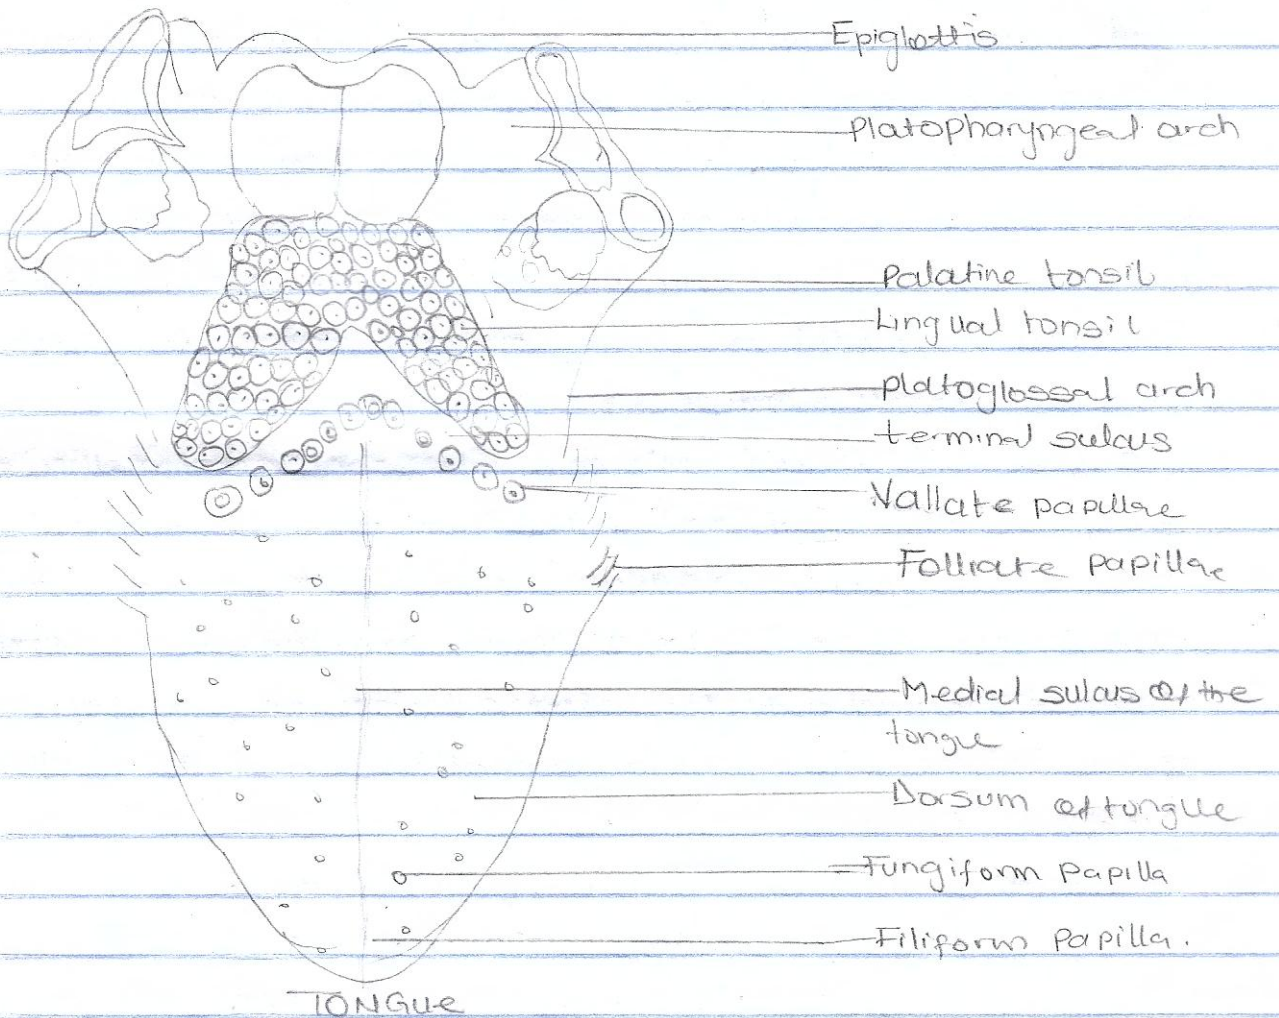 Epiglottis
Platopharyngeal arch
Palatine tonsil
Lingual tonsil
Platoglossal arch
terminal sulcus
Vallate papillae
Folliate papillae
Medial sulcus of the
tongue
Dorsum of tongue
Fungiform papilla
Filiform papilla.
TONGUE